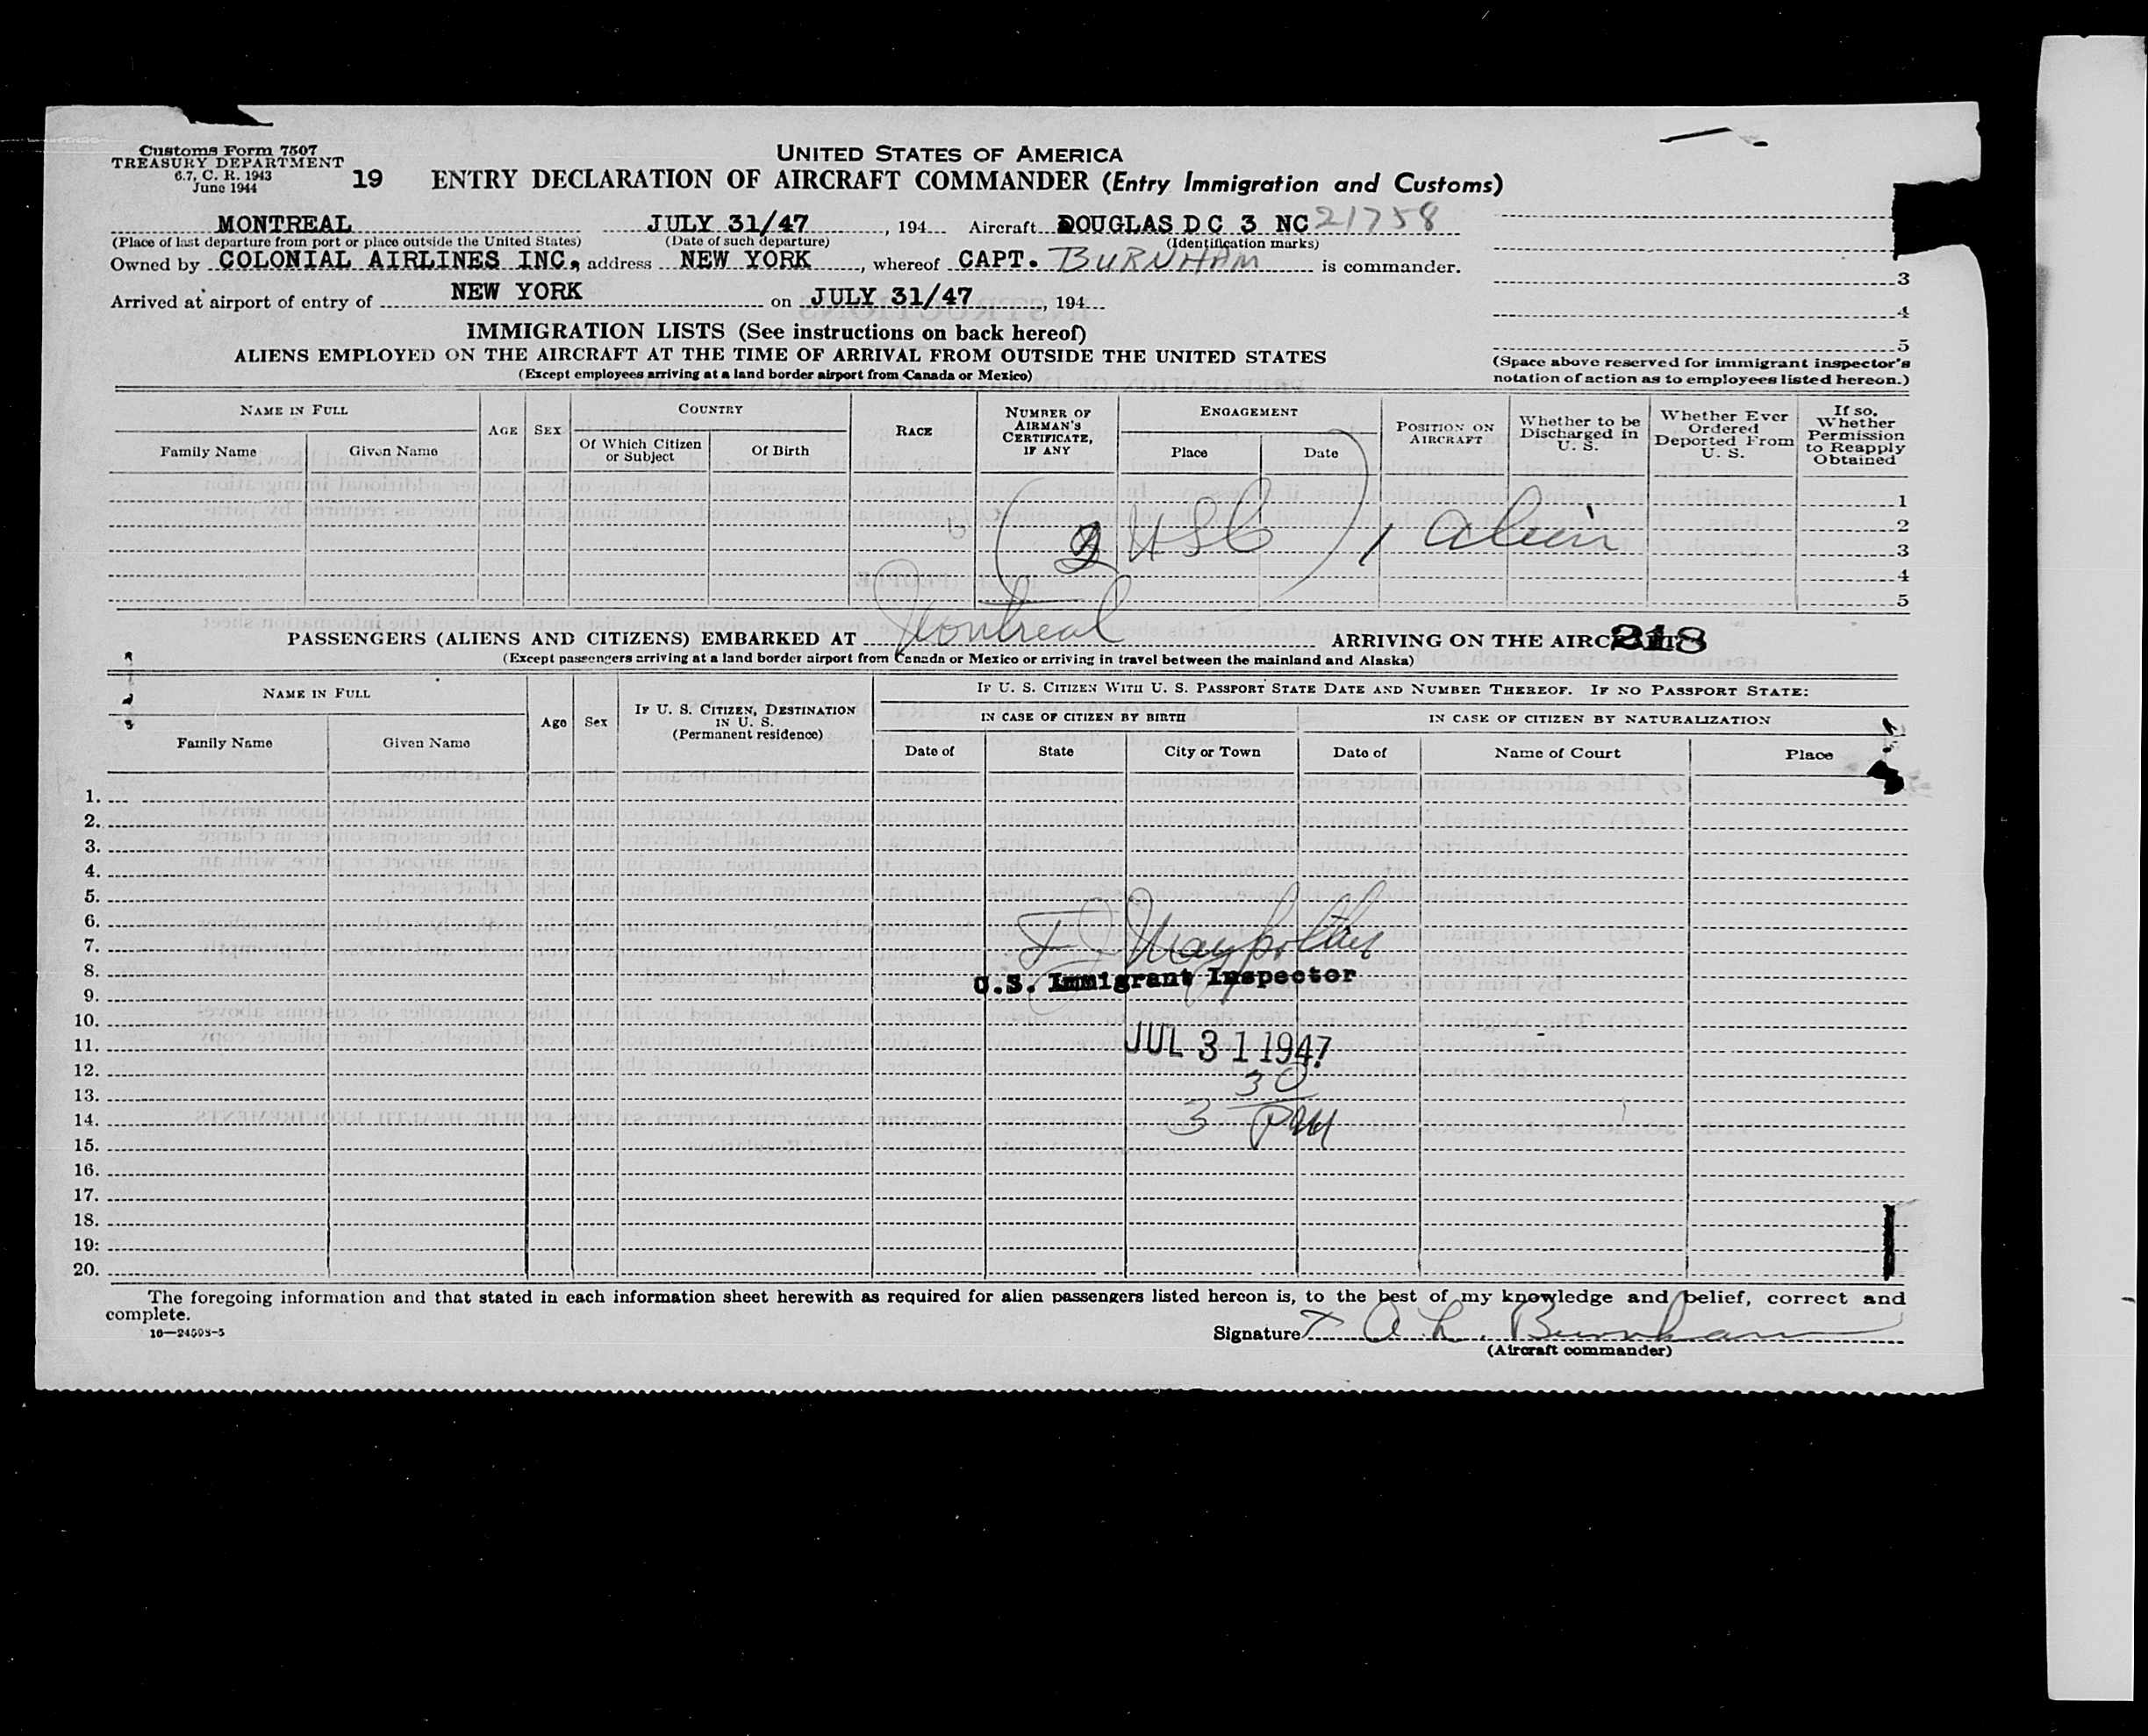 Customs Form 7507
TREASURY DEPARTMENT
6.7, C. R. 1943
June 1944
19
UNITED STATES OF AMERICA
ENTRY DECLARATION OF AIRCRAFT COMMANDER (Entry Immigration and Customs)
MONTREAL JULY 31/47, 194 Aircraft DOUGLAS D C 3 NC 21758
(Place of last departure from port or place outside the United States) (Date of such departure) (Identification marks)
Owned by COLONIAL AIRLINES INC, address NEW YORK, whereof CAPT. BURNHAM is commander.
Arrived at airport of entry of NEW YORK on JULY 31/47, 194
3
4
5
(Space above reserved for immigrant inspector's
notation of action as to employees listed hereon.)
IMMIGRATION LISTS (See instructions on back hereof)
ALIENS EMPLOYED ON THE AIRCRAFT AT THE TIME OF ARRIVAL FROM OUTSIDE THE UNITED STATES
(Except employees arriving at a land border airport from Canada or Mexico)
NAME IN FULL
Family Name Given Name
AGE
SEX
COUNTRY
Of Which Citizen or Subject
Of Birth
RACE
NUMBER OF AIRMAN'S CERTIFICATE, IF ANY
ENGAGEMENT
Place Date
POSITION ON AIRCRAFT
Whether to be Discharged in U. S.
Whether Ever Ordered Deported From U. S.
If so, Whether Permission to Reapply Obtained
1
2
3
4
5
USC 1 Alien
PASSENGERS (ALIENS AND CITIZENS) EMBARKED AT Montreal ARRIVING ON THE AIRCRAFT:
218
(Except passengers arriving at a land border airport from Canada or Mexico or arriving in travel between the mainland and Alaska)
NAME IN FULL
Family Name Given Name
Age
Sex
IF U. S. CITIZEN, DESTINATION IN U. S.
(Permanent residence)
IF U. S. CITIZEN WITH U. S. PASSPORT STATE DATE AND NUMBER THEREOF. IF NO PASSPORT STATE:
IN CASE OF CITIZEN BY BIRTH
IN CASE OF CITIZEN BY NATURALIZATION
Date of State City or Town Date of Name of Court Place
1.
2.
3.
4.
5.
6.
7.
8.
9.
10.
11.
12.
13.
14.
15.
16.
17.
18.
19.
20.
U.S. Immigrant Inspector
JUL 31 1947
3 30 PM
The foregoing information and that stated in each information sheet herewith as required for alien passengers listed hereon is, to the best of my knowledge and belief, correct and
complete.
Signature A. L. Burnham
(Aircraft commander)